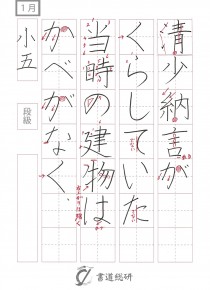 1月
小五
段級
清少納言が
くらしていた
当時の建物は
かべがなく
書道総研